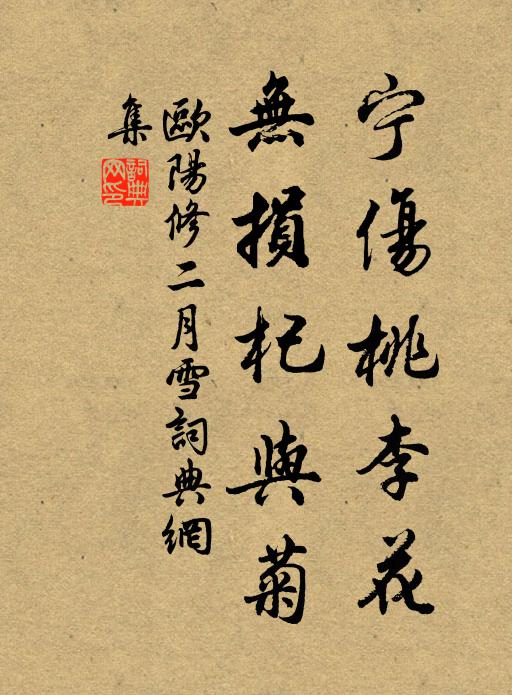 宁傷桃李花
無損杞與菊
歐陽修二月雪詞典網
集
詞典
网印